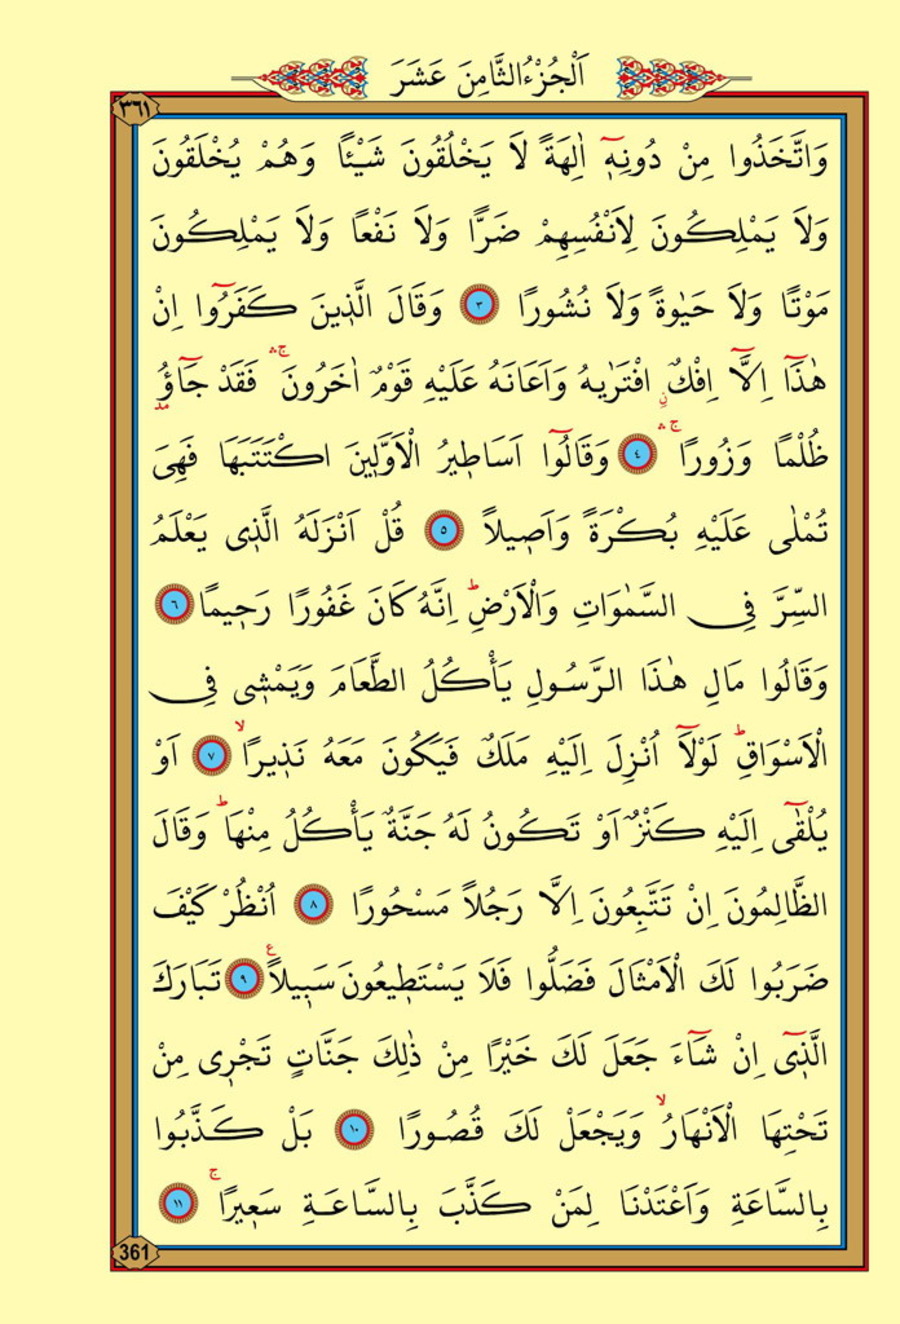 اَلْجُزْءُ الثَّامِنَ عَشَرَ
٣٦١
وَاتَّخَذُوا مِنْ دُونِهٖٓ اٰلِهَةً لَا يَخْلُقُونَ شَيْـًٔا وَهُمْ يُخْلَقُونَ
وَلَا يَمْلِكُونَ لِاَنْفُسِهِمْ ضَرًّا وَلَا نَفْعًا وَلَا يَمْلِكُونَ
مَوْتًا وَلَا حَيٰوةً وَلَا نُشُورًا ٣ وَقَالَ الَّذٖينَ كَفَرُٓوا اِنْ
هٰذَٓا اِلَّٓا اِفْكٌۨ افْتَرٰيهُ وَاَعَانَهُ عَلَيْهِ قَوْمٌ اٰخَرُونَۚۛ فَقَدْ جَٓاؤُ
ظُلْمًا وَزُورًاۚۛ ٤ وَقَالُٓوا اَسَاطٖيرُ الْاَوَّلٖينَ اكْتَتَبَهَا فَهِىَ
تُمْلٰى عَلَيْهِ بُكْرَةً وَاَصٖيلًا ٥ قُلْ اَنْزَلَهُ الَّذٖى يَعْلَمُ
السِّرَّ فِى السَّمٰوَاتِ وَالْاَرْضِؕ اِنَّهُ كَانَ غَفُورًا رَحٖيمًا ٦
وَقَالُوا مَالِ هٰذَا الرَّسُولِ يَاْكُلُ الطَّعَامَ وَيَمْشٖى فِى
الْاَسْوَاقِؕ لَوْلَٓا اُنْزِلَ اِلَيْهِ مَلَكٌ فَيَكُونَ مَعَهُ نَذٖيرًاۙ ٧ اَوْ
يُلْقٰٓى اِلَيْهِ كَنْزٌ اَوْ تَكُونُ لَهُ جَنَّةٌ يَاْكُلُ مِنْهَاؕ وَقَالَ
الظَّالِمُونَ اِنْ تَتَّبِعُونَ اِلَّا رَجُلًا مَسْحُورًا ٨ اُنْظُرْ كَيْفَ
ضَرَبُوا لَكَ الْاَمْثَالَ فَضَلُّوا فَلَا يَسْتَطٖيعُونَ سَبٖيلًاࣖ ٩ تَبَارَكَ
الَّذٖٓى اِنْ شَٓاءَ جَعَلَ لَكَ خَيْرًا مِنْ ذٰلِكَ جَنَّاتٍ تَجْرٖى مِنْ
تَحْتِهَا الْاَنْهَارُۙ وَيَجْعَلْ لَكَ قُصُورًا ١٠ بَلْ كَذَّبُوا
بِالسَّاعَةِ وَاَعْتَدْنَا لِمَنْ كَذَّبَ بِالسَّاعَةِ سَعٖيرًاۚ ١١
361